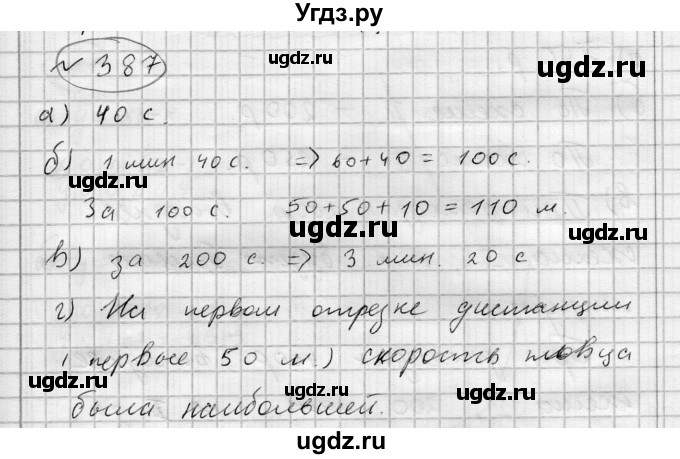 Угдз.ру
№ 387
а) 40 с.
б) 1 мин 40 с. => 60+40 = 100 с.
За 100 с. 50+50+10 = 110 м.
в) за 200 с. => 3 мин. 20 с
г) На первом отрезке дистанции
(первые 50 м.) скорость пловца
была наибольшей.
ugdz.ru
ugdz.ru
ugdz.ru
ugdz.ru
ugdz.ru
ugdz.ru
ugdz.ru
ugdz.ru
ugdz.ru
ugdz.ru
ugdz.ru
ugdz.ru
ugdz.ru